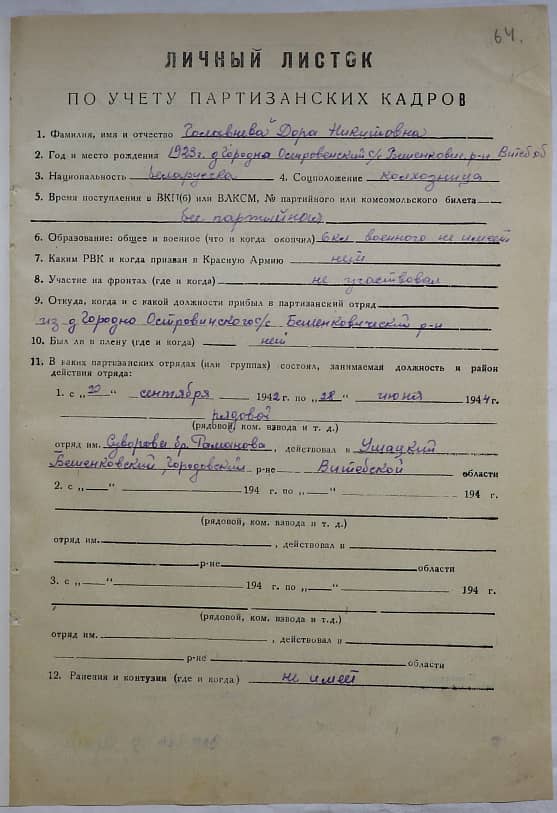 64.
ЛИЧНЫЙ ЛИСТОК
ПО УЧЕТУ ПАРТИЗАНСКИХ КАДРОВ
1. Фамилия, имя и отчество Дора Никитовна
2. Год и место рождения 1923 г. д Городна Островенский с/с Бешенкович. р-н Витеб об
3. Национальность беларуска 4. Соцположение колхозница
5. Время поступления в ВКП(б) или ВЛКСМ, № партийного или комсомольского билета
бес партийной
6. Образование: общее и военное (что и когда окончил) 6 кл военного не имеет
7. Каким РВК и когда призван в Красную Армию нет
8. Участие на фронтах (где и когда) не участвовал
9. Откуда, когда и с какой должности прибыл в партизанский отряд
из д Городно Островинского с/с Бешенковический р-н
10. Был ли в плену (где и когда) нет
11. В каких партизанских отрядах (или группах) состоял, занимаемая должность и район
действия отряда:
1. с „20“ сентября 1942 г. по „28“ июня 1944 г.
рядовой
(рядовой, ком. взвода и т. д.)
отряд им. Суворова бр. Романова, действовал в Ушацкий
Бешенковский, Городовский р-не Витебской области
2. с „ “ 194 г. по „ “ 194 г.
(рядовой, ком. взвода и т. д.)
отряд им. , действовал в
р-не области
3. с „ “ 194 г. по „ “ 194 г.
(рядовой, ком. взвода и т.д.)
отряд им. , действовал в
р-не области
12. Ранения и контузии (где и когда) не имеет